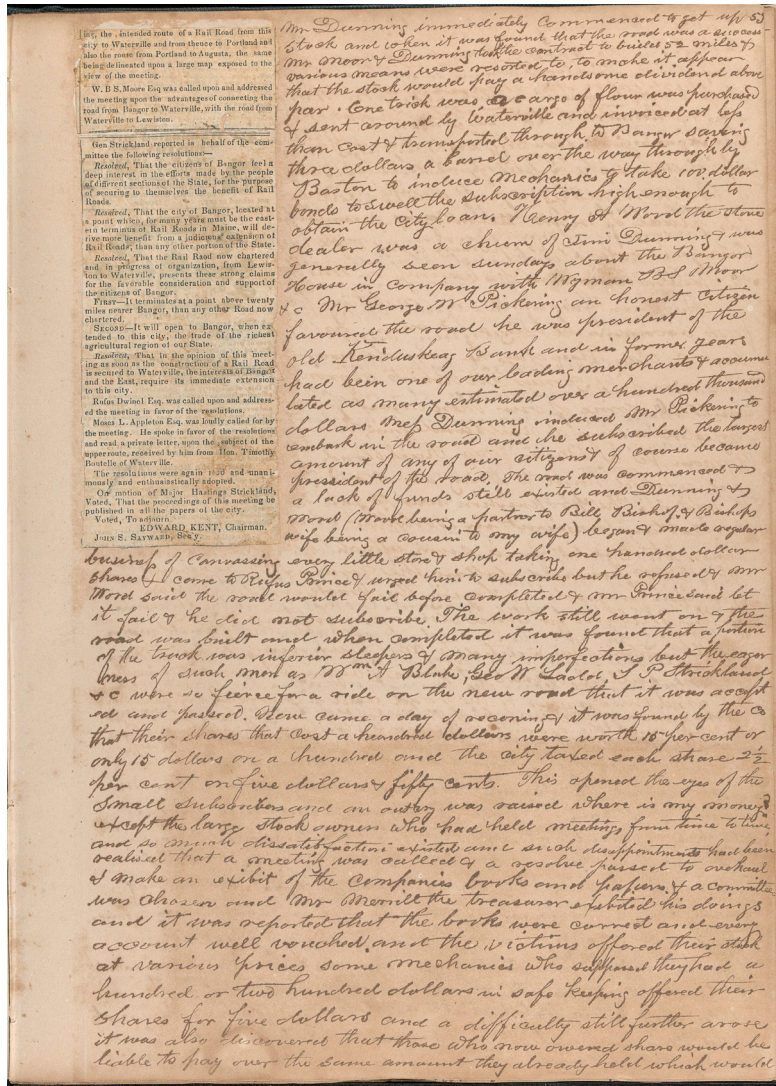 ing, the intended route of a Rail Road from this
city to Waterville and from thence to Portland and
also the route from Portland to Augusta, the same
being delineated upon a large map exposed to the
view of the meeting.
W. B S. Moore Esq was called upon and addressed
the meeting upon the advantages of connecting the
road from Bangor to Waterville, with the road from
Waterville to Lewiston.
Gen Strickland reported in behalf of the com-
mittee the following resolutions—
Resolved, That the citizens of Bangor feel a
deep interest in the efforts made by the people
of different sections of the State, for the purpose
of securing to themselves the benefit of Rail
Roads.
Resolved, That the city of Bangor, located at
a point which, for many years must be the east-
ern terminus of Rail Roads in Maine, will de-
rive more benefit from a judicious extension of
Rail Roads, than any other portion of the State.
Resolved, That the Rail Road now chartered
and in progress of organization, from Lewis-
ton to Waterville, presents these strong claims
for the favorable consideration and support of
the citizens of Bangor.
First—It terminates at a point above twenty
miles nearer Bangor, than any other Road now
chartered.
Second—It will open to Bangor, when ex-
tended to this city, the trade of the richest
agricultural region of our State.
Resolved, That in the opinion of this meet-
ing as soon as the construction of a Rail Road
is secured to Waterville, the interests of Bangor
and the East, require its immediate extension
to this city.
Rufus Dwinel Esq. was called upon and address-
ed the meeting in favor of the resolutions.
Moses L. Appleton Esq. was loudly called for by
the meeting. He spoke in favor of the resolutions
and read a private letter, upon the subject of the
upper route, received by him from Hon. Timothy
Boutelle of Waterville.
The resolutions were again read and unani-
mously and enthusiastically adopted.
On motion of Major Hastings Strickland,
Voted, That the proceedings of this meeting be
published in all the papers of the city.
Voted, To adjourn.
EDWARD KENT, Chairman.
John S. Sayward, Sec'y.
Mr Dunning immediately Commenced to get up 53
stock and when it was found that the road was a success
Mr Moor & Dunning took the contract to build 52 miles &
various means were resorted to, to make it appear
that the stock would pay a handsome dividend above
par. One trick was, a cargo of flour was purchased
& sent around by Waterville and invoiced at less
than cost & transported through to Bangor saving
three dollars a barrel over the way through by
Boston to induce Mechanics to take 100 dollar
bonds to swell the subscription high enough to
obtain the city loan. Henry A Word the stove
dealer was a chum of Jim Dunning & was
generally seen sundays about the Bangor
House in company with Wyman B S Moor
& c Mr George W Pickering an honest Citizen
favoured the road he was president of the
old Kenduskeag Bank and in former years
had been one of our leading merchants & accumu
lated as many estimated over a hundred thousand
dollars Mess Dunning induced Mr Pickering to
embark in the road and he subscribed the largest
amount of any of our citizens & of course became
president of the road. The road was commenced &
a lack of funds still existed and Dunning &
Word (Word being a partner to Bill Bishop, & Bishops
wife being a cousin to my wife) began & made regular
business of canvassing every little store & shop taking one hundred dollar
shares & come to Rufus Prince & urged him to subscribe but he refused & Mr
Word said the road would fail before completed & Mr Prince said let
it fail & he did not subscribe. The work still went on & the
road was built and when completed it was found that a portion
of the track was inferior sleepers & many imperfections but the eager
ness of such men as Wm A Blake, Geo W Ladd, S P Strickland
& c were so fierce for a ride on the new road that it was accept
ed and passed. Now came a day of reconing & it was found by the Co
that their shares that cost a hundred dollars were worth 15 per cent or
only 15 dollars on a hundred and the city taxed each share 2½
per cent on five dollars & fifty cents. This opened the eyes of the
small subscribers and an outcry was raised where is my money?
except the large stock owners who had held meetings from time to time
and so much dissatisfaction existed and such disappointments had been
realised that a meeting was called & a resolve passed to overhaul
& make an exibit of the Companies books and papers, & a committee
was chosen and Mr Merrill the treasurer exibited his doings
and it was reported that the books were correct and every
account well vouched. and the victims offered their stock
at various prices some mechanics who supposed they had a
hundred or two hundred dollars in safe keeping offered their
shares for five dollars and a difficulty still further arose
it was also discovered that those who now owned share would be
liable to pay over the same amount they already held which would